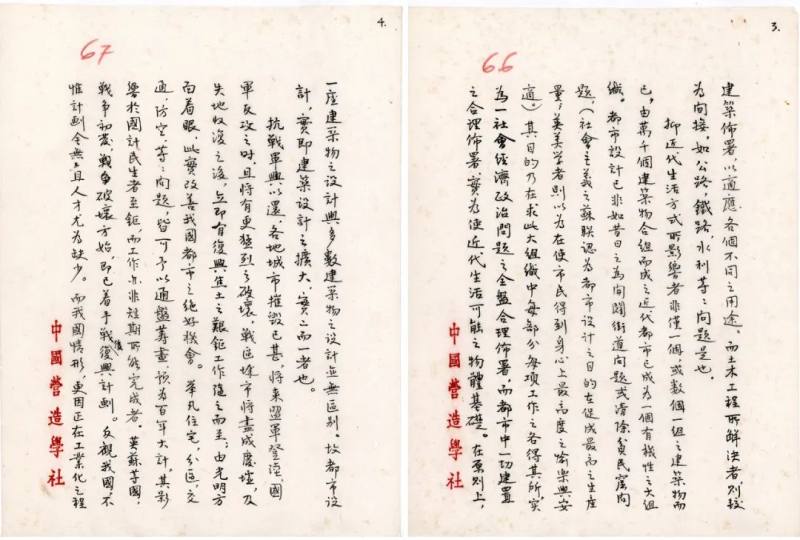 3.
66
建築佈署,以適應各個不同之用途。而土木工程所解決者,則較
為間接,如公路,鐵路,水利等等問題是也。
抑近代生活方式所影響者非僅一個,或數個一組之建築物而
已,由萬千個建築物合組而成之近代都市已成為一個有機性之大組
織。都市設計已非如昔日之為開闢街道問題或清除貧民窟問
題,(社會主義之蘇聯認為都市設計之目的在促成最高之生產
量;英美學者則以為在使市民得到身心上最高度之愉樂與安
適)其目的乃在求此大組織中每部分每項工作之各得其所,實
為一社會經濟政治問題之全盤合理佈署,而都市中一切建置
之合理佈署,實為使近代生活可能之物體基礎。在原則上,
中國營造學社
4.
67
一座建築物之設計與多數建築物之設計並無區別。故都市設
計,實即建築設計之擴大,實二而一者也。
抗戰軍興以還,各地城市摧毀已甚,將來盟軍登陸,國
軍反攻之時,且將有更猛烈之破壞,戰區城市將盡成廢墟,及
失地收復之後,立即有復興焦土之艱鉅工作隨之而至;由光明方
面着眼,此實改善我國都市之絕好機會。舉凡住宅,分區,交
通,防空等等問題,皆可予以通盤籌畫,預為百年大計,其影
響於國計民生者至鉅,而工作亦非短期所能完成者。英蘇等國,
戰爭初發,戰爭破壞方始,即已着手戰後復興計劃。反觀我國,不
惟計劃全無,且人才尤為缺少。而我國情形,更因正在工業化之程
中國營造學社